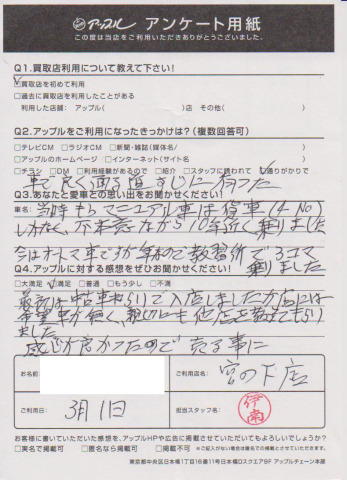 アップル アンケート用紙
この度は当店をご利用いただきありがとうございました。
Q1.買取店利用について教えて下さい!
☑買取店を初めて利用
□過去に買取店を利用したことがある
利用した店舗: アップル( )店 その他( )
Q2.アップルをご利用になったきっかけは?(複数回答可)
□テレビCM □ラジオCM □新聞・雑誌(媒体名/ )
□アップルのホームページ □インターネット(サイト名 )
□チラシ □DM □利用経験があるので □紹介 □スタッフに誘われて ☑通りがかりで
車で良く通る道すじに有った
Q3.あなたと愛車との思い出をお聞かせください!
車名: 当時もうマニュアル車は貨車(4No)
しかなく、不本意ながら10年近く乗りました
今はオートマ車ですが年なので教習所で3コマ
乗りました
Q4.アップルに対する感想をぜひお聞かせください!
□大満足 ☑満足 □普通 □もう少し □不満
最初は中古車ねらいで入店しましたが店には
希望車が無く、親切にも他店を教えてもらい
ました
感じが良かったので 売る事に
お名前:
ご利用店名: 宮の下店
ご利用日: 3月1日
担当スタッフ名: 伊南
お客様に書いていただいた感想を、アップルHPや広告に掲載させていただいてもよろしいでしょうか?
□実名で掲載可 □匿名なら掲載可 □掲載不可 ※ご記入がない場合は匿名での掲載とさせていただきます。
東京都中央区日本橋1丁目16番11号日本橋Dスクエア9F アップルチェーン本部